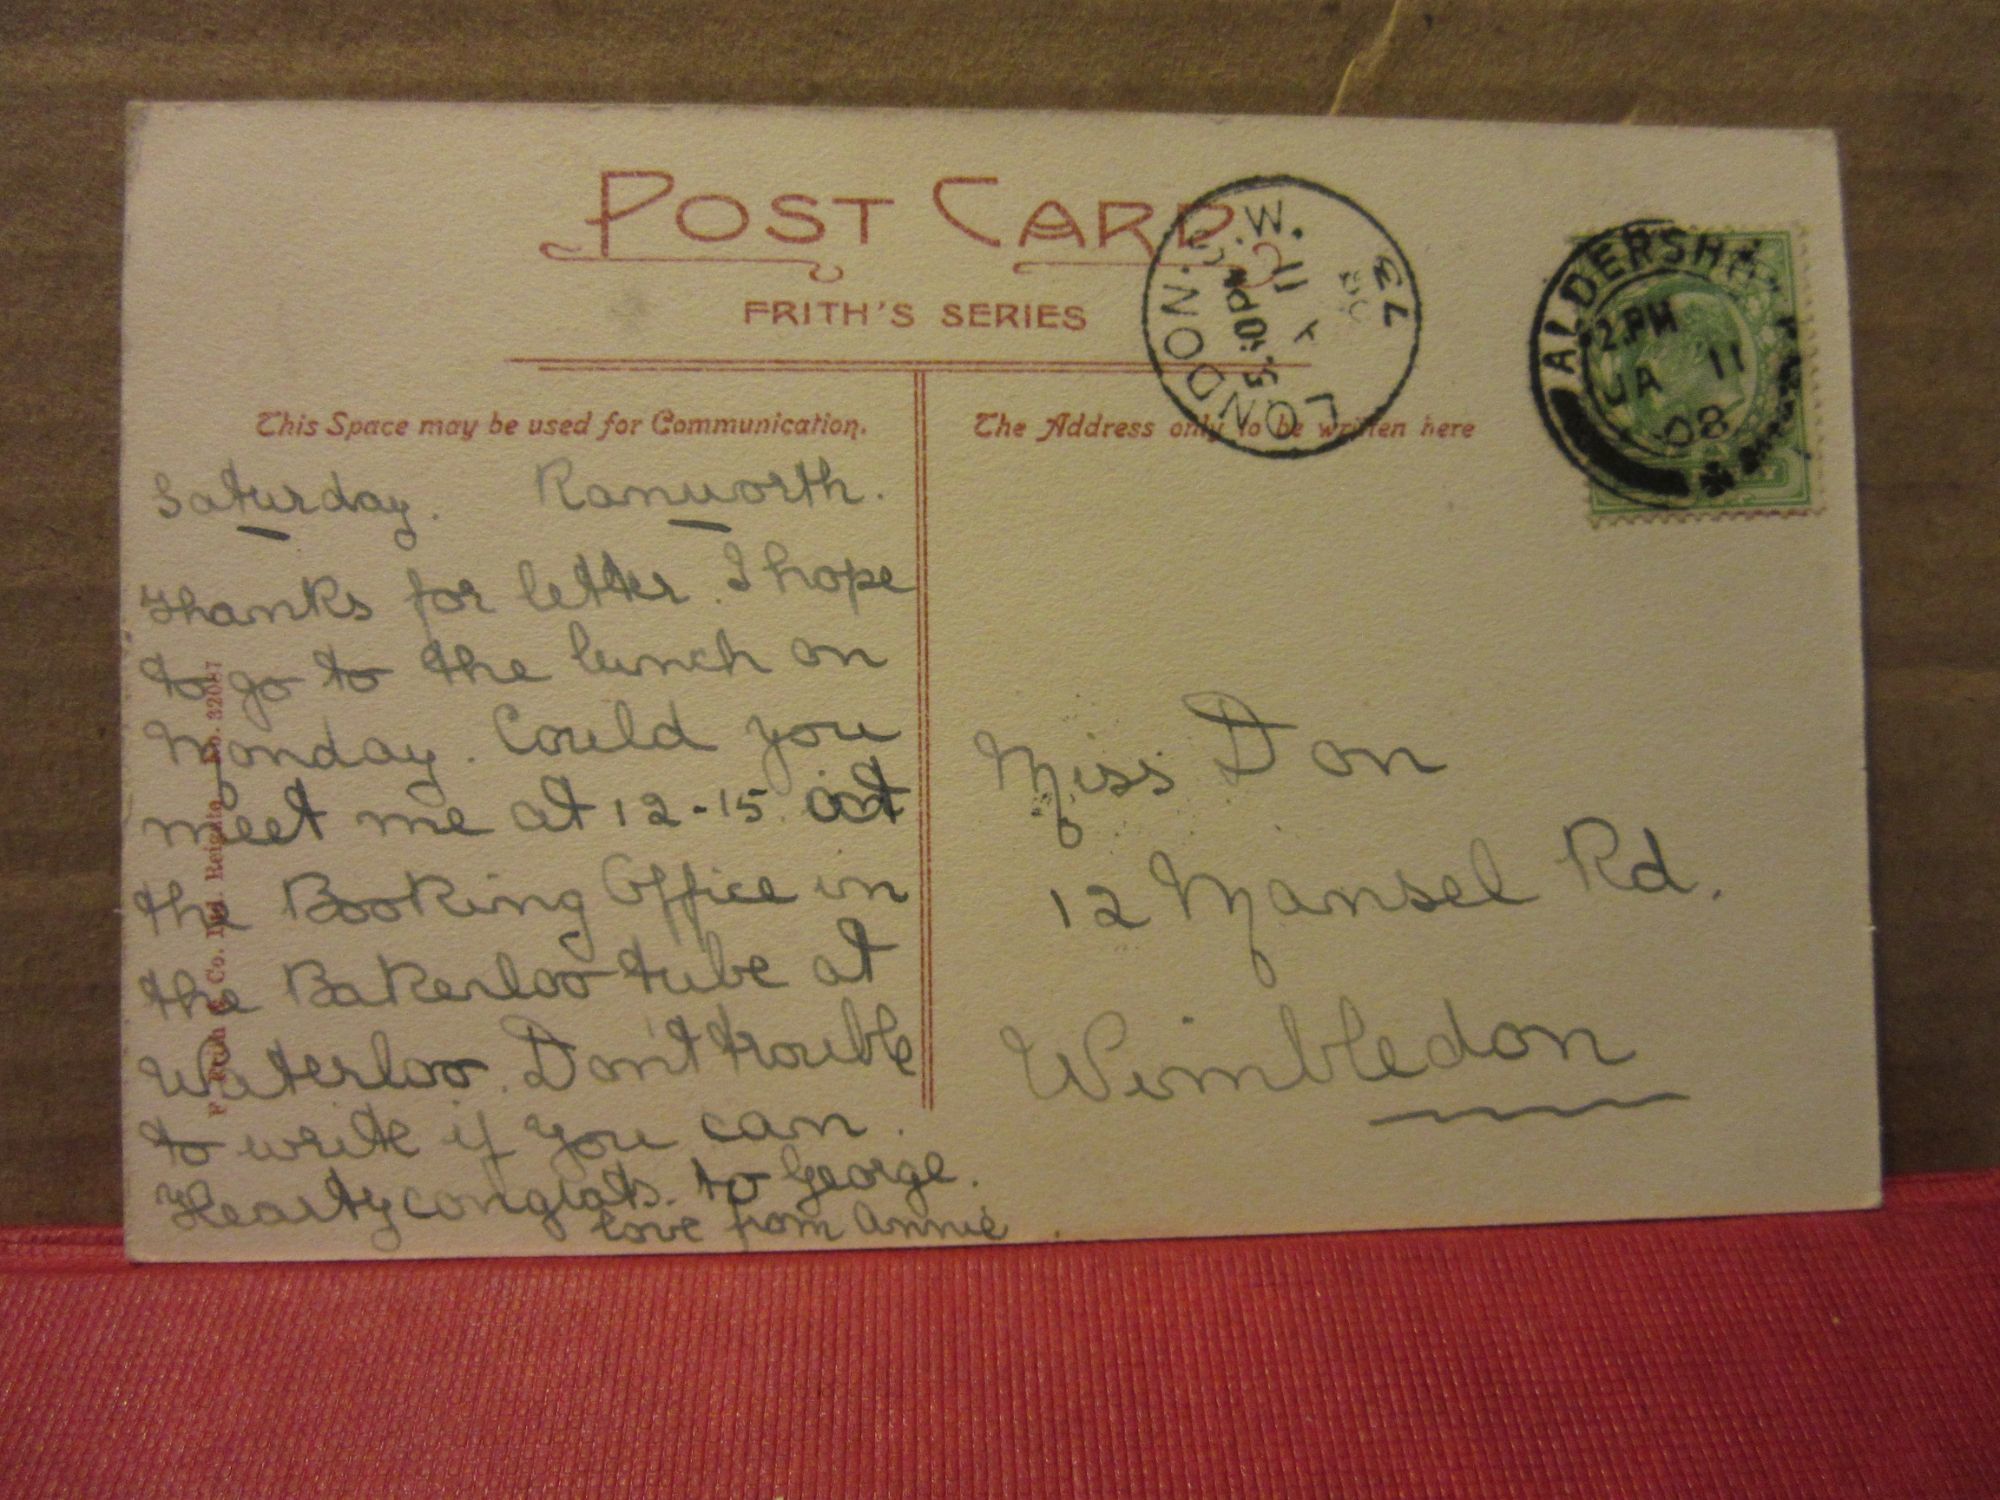 POST CARD
FRITH'S SERIES
This Space may be used for Communication.
The Address only to be written here
LONDON. S.W.
5.10PM
11
08
73
ALDERSHOT
2.PM
JA 11
08
Saturday. Ranworth.
Thanks for letter. I hope
to go to the lunch on
Monday. Could you
meet me at 12-15 at
the Booking Office in
the Bakerloo tube at
Waterloo. Don't trouble
to write if you can.
Hearty congrats. to George.
love from Annie.
Miss Don
12 Mansel Rd.
Wimbledon
F. Frith & Co. Ltd. Reigate. No. 32087